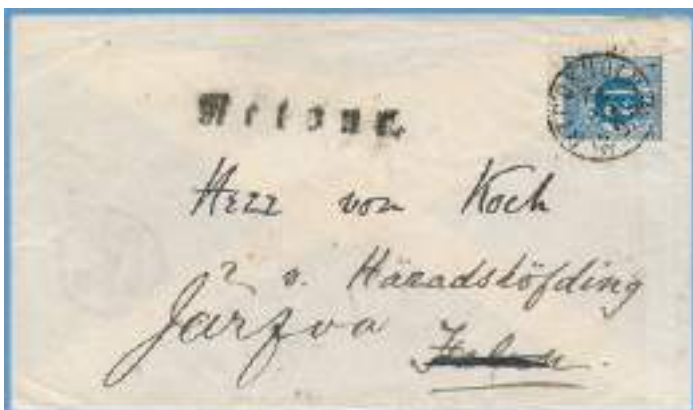 Retour.
Herr von Koch
? v. Häradshöfding
Järfva